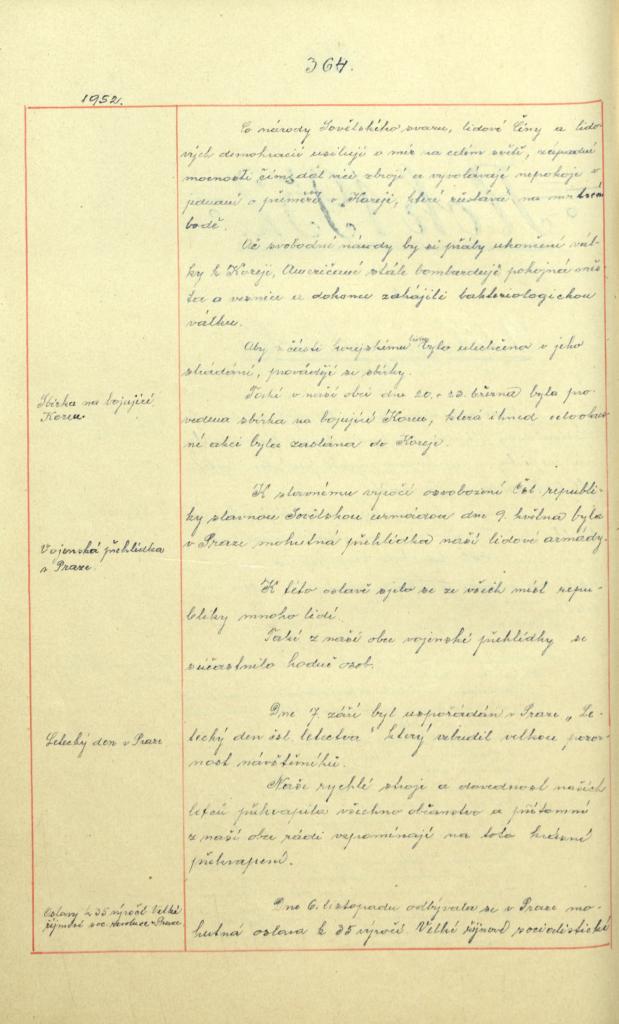 364.
1952.
Co národy Sovětského svazu, lidové Číny a lido-
vých demokracií usilují o mír na celém světě, západní
mocnosti čím dál více zbrojí a vyvolávají nepokoje v
jednání o příměří v Koreji, které zůstává na mrtvém
bodě.
Ač svobodné národy by si přály ukončení vál-
ky v Koreji, Američané stále bombardují pokojná měs-
ta a vesnice a dokonce zahájili bakteriologickou
válku.
Aby z části korejskému lidu bylo ulehčeno v jeho
strádání, provádějí se sbírky.
Sbírka na bojující
Koreu.
Také v naší obci dne 20. + 23. března byla pro-
vedena sbírka na bojující Koreu, která ihned
né akci byla zaslána do Koreje.
K slavnému výročí osvobození Čsl. republi-
ky slavnou Sovětskou armádou dne 9. května byla
v Praze mohutná přehlídka naší lidové armády.
Vojenská přehlídka
v Praze.
K této oslavě sjelo se ze všech míst repu-
bliky mnoho lidí.
Také z naší obce vojenské přehlídky se
súčastnilo hodně osob.
Dne 7. září byl uspořádán v Praze „Le-
tecký den čsl. letectva" který vzbudil velkou pozor-
nost návštěvníků.
Letecký den v Praze
Naše rychlé stroje a dovednost našich
letců překvapila všechno občanstvo a přítomní
z naší obce rádi vzpomínají na toto krásné
překvapení.
Oslavy k 35 výročí Velké
říjnové soc. revoluce v Praze
Dne 6. listopadu odbývala se v Praze mo-
hutná oslava k 35 výročí Velké říjnové socialistické